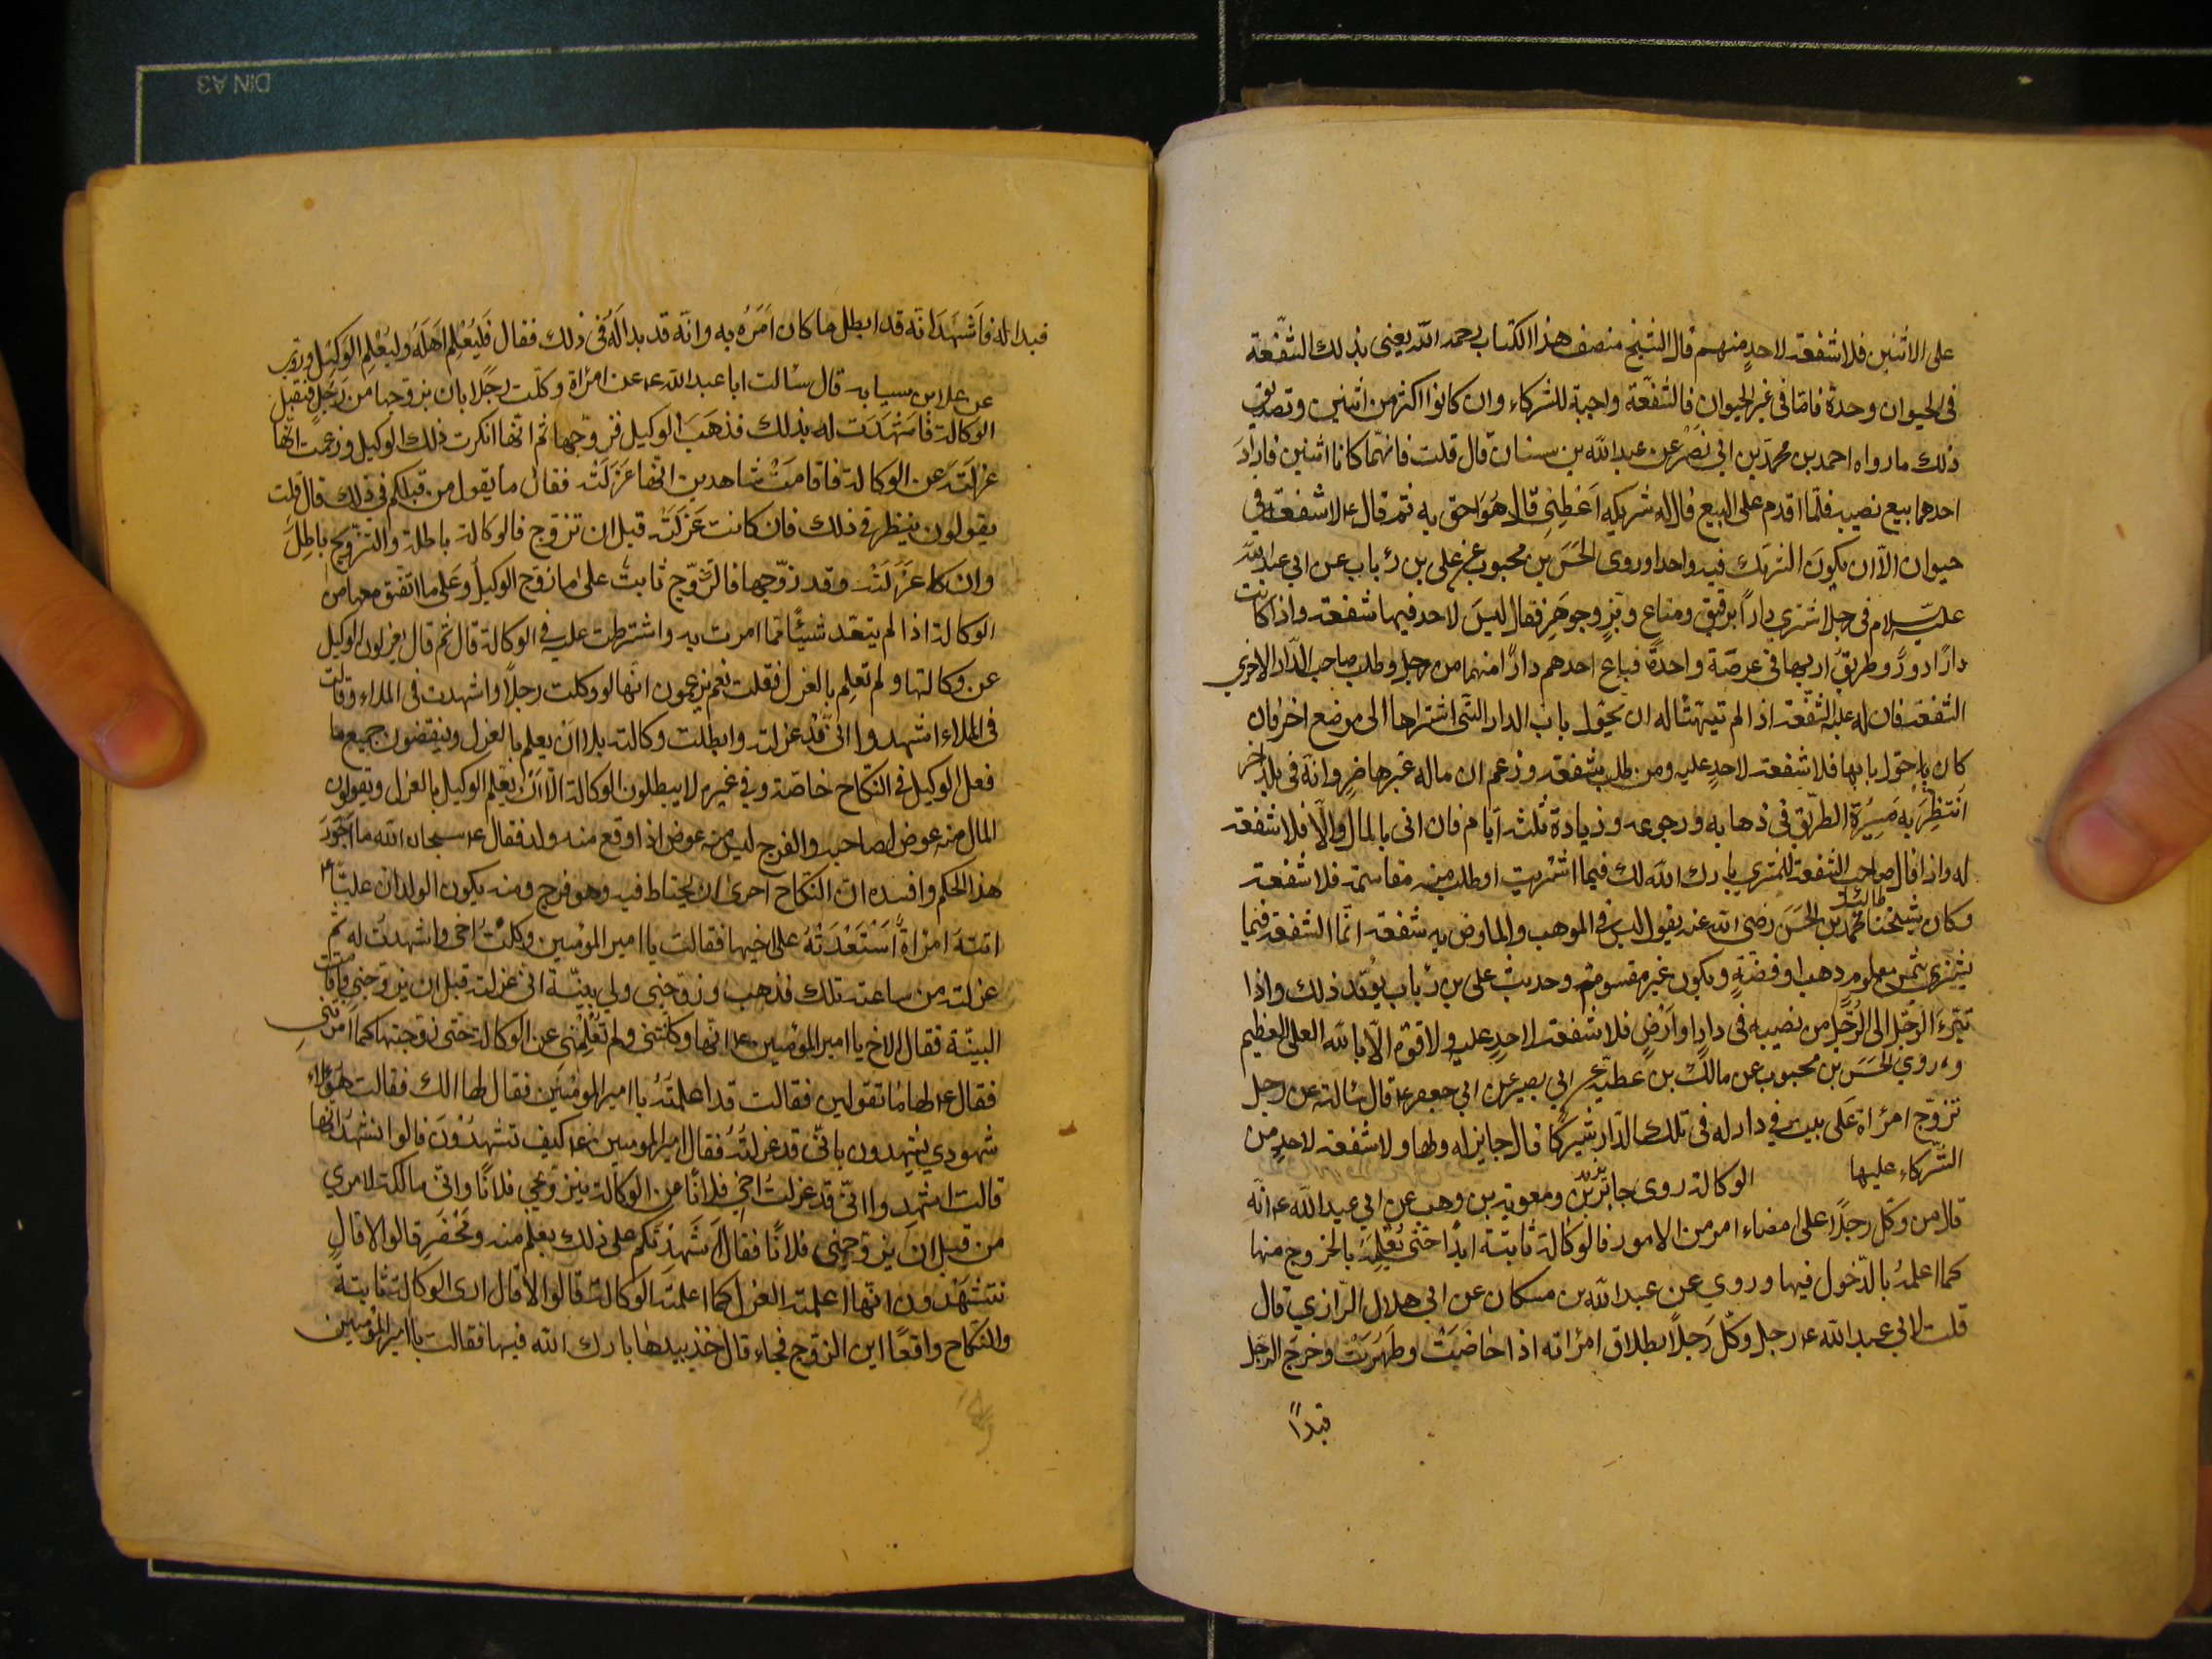 على الاثنين فلا شفعة لاحدٍ منهم قال الشيخ منصف هذا الكتاب رحمه الله يعنى بذلك الشفعة
فى الحيوان وحدة فامّا فى غير الحيوان فالشفعة واجبة للشركاء وان كانوا اكثر من اثنين وتصديق
ذلك ما رواه احمد بن محمد بن ابي نصر عن عبد الله بن سنان قال قلت فانهما كانا اثنين فاراد
احدهما بيع نصيبه فلمّا اقدم على البيع قال له شريكه اعطني قال هو احق به ثم قال ع لا شفعة فى
حيوان الّا ان يكون الشريك فيه واحدا وروى الحسن بن محبوب عن على بن رئاب عن ابي عبد الله
عليه السلام فى رجل اشترى دارا برقيق ومتاع وبزّ وجوهر فقال ليس لاحد فيها شفعة واذا كانت
دارًا دورٌ وطريق اربابها فى عرصة واحدة فباع احدهم دارًا منهما من رجل وطلب صاحب الدار الاخرى
الشفعة فان له عليه الشفعة اذا لم تيهتا له ان يحوّل باب الدار التى اشتراها الى موضع اخر فان
كان حوّل بابها فلا شفعة لاحدٍ عليه ومن طلب شفعة وزعم ان ماله غير حاضر وانّه فى بلد اخر
انتظر به مسيرة الطريق فى ذهابه ورجوعه وزيادة ثلثة ايام فان اتى بالمال والّا فلا شفعة
له واذا قال صاحب الشفعة للمشتري بارك الله لك فيما اشتريت او طلب منه مقاسمة فلا شفعة
وكان شيخنا محمد بن الحسن رضى الله عنه يقول ليس فى الموهب والمعاوض به شفعة انّما الشفعة فيما
يشترى بثمن معلوم ذهب او فضّةٍ ويكون غير مقسومة وحديث على بن رئاب يؤيّد ذلك واذا
تبرّء الرجل الى الرّجل من نصيبه فى دارٍ او ارضٍ فلا شفعة لاحدٍ عليه ولا قوة الّا بالله العلى العظيم
وروى الحسن بن محبوب عن مالك بن عطيّة عن ابي بصير عن ابي جعفر ع قال سئالته عن رجل
تزوّج امرأة على بيت في دار له فى تلك الدار شركا قال جايز له ولها ولا شفعة لاحدٍ من
الشّركاء عليها الوكالة روى جابر بن يزيد ومعوية بن وهب عن ابي عبد الله ع انّه
قال من وكّل رجلًا على امضاء امر من الامور فالوكالة ثابتة ابدًا حتى يُعْلِمَهُ بالخروج منها
كما اعلمهُ بالدّخول فيها وروي عن عبد الله بن مسكان عن ابي هلال الرازي قال
قلت لابي عبد الله ع رجل وكّل رجلًا بطلاق امرأته اذا حاضت وطهرت وخرج الرجل
فبدا
فبدا له فاشهد انّه قد ابطل ما كان امره به وانّه قد بدا له فى ذلك فقال فليُعلم اهله وليُعلم الوكيل وروى
عن علا بن سيابه قال سئالت ابا عبد الله ع عن امرأة وكّلت رجلًا بان يزوجها من رجلٍ فقبل
الوكالة فاشهدت له بذلك فذهب الوكيل فزوّجها ثم انّها انكرت ذلك الوكيل وزعمت انّها
عزلته عن الوكالة فاقامت شاهدين انّها عزلته فقال ما يقول من قبلكم فى ذلك قال قلت
يقولون ينظر في ذلك فان كانت عزلته قبل ان تزوج فالوكالة باطلة والتزويج باطل
وان كا عزلته وقد زوّجها فالتزوّج ثابت على ما زوج الوكيل وعلى ما اتفق معها من
الوكالة اذا لم يتعد شيئًا مما امرت به واشترطت عليه فى الوكالة قال ثم قال يعزلون الوكيل
عن وكالتها ولم تعلم بالعزل فقلت نعم يزعمون انّها لو وكلت رجلًا واشهدت فى الملاء وقالت
فى الملاء اشهدوا انى قد عزلته وابطلت وكالته بلا ان يعلم بالعزل وينقضون جميع ما
فعل الوكيل فى النكاح خاصّة وفي غيره لا يبطلون الوكالة الّا ان يعلم الوكيل بالعزل ويقولون
المال منه عوض لصاحبه والفرج ليس منه عوض اذا وقع منه ولد فقال ع سبحان الله ما اجور
هذا الحكم وافسده ان النكاح احرى ان يحتاط فيه وهو فرج ومنه يكون الولد ان عليًّا ع
اتته امرأةٌ استعدته على اخيها فقالت يا امير المؤمنين وكلتُ اخى واشهدتُ له ثم
عزلته من ساعته تلك فذهب وزوجني ولي بيّنة انّي عزلته قبل ان يزوجني واقامت
البيّنة فقال الاخ يا امير المؤمنين ع انّها وكلتني ولم تعلمني عن الوكالة حتى زوجتها كما امرتني
فقال ع لها ما تقولين فقالت قد اعلمته يا امير المؤمنين فقال لها الك فقالت هؤلاء
شهودي يشهدون بانّى قد عزلته فقال امير المومنين ع كيف تشهدون قالوا نشهد انّها
قالت اشهدوا انّى قد عزلت اخي فلانًا عن الوكالة بتزويجي فلانًا وانّى مالكة لامري
من قبل ان يزوجنى فلانًا فقال اشهدتكم على ذلك بعلم منه ومحضر قالوا لا قال
فتشهدون انّها اعلمته العزل كما اعلمته الوكالة قالوا لا قال ارى الوكالة ثابتة
والنكاح واقعًا اين الزوج فجاء قال خذ بيدها بارك الله فيها فقالت يا امير المؤمنين